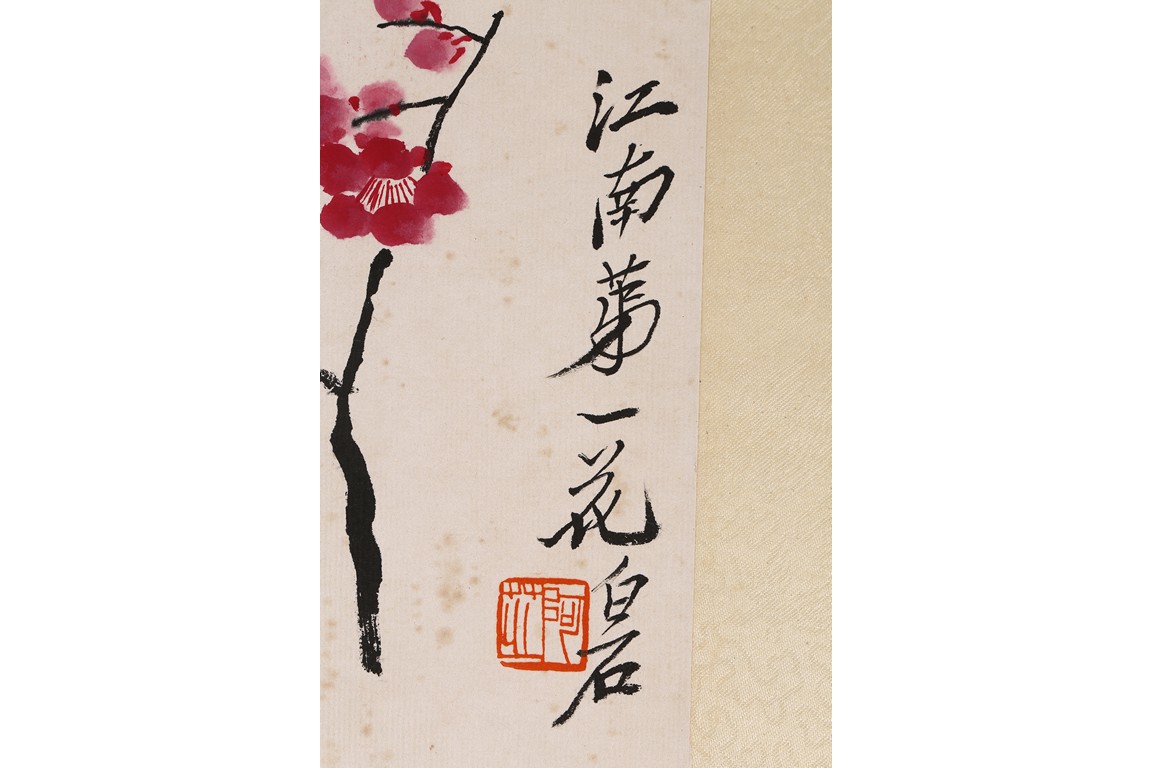 江南第一花白石
阿芝